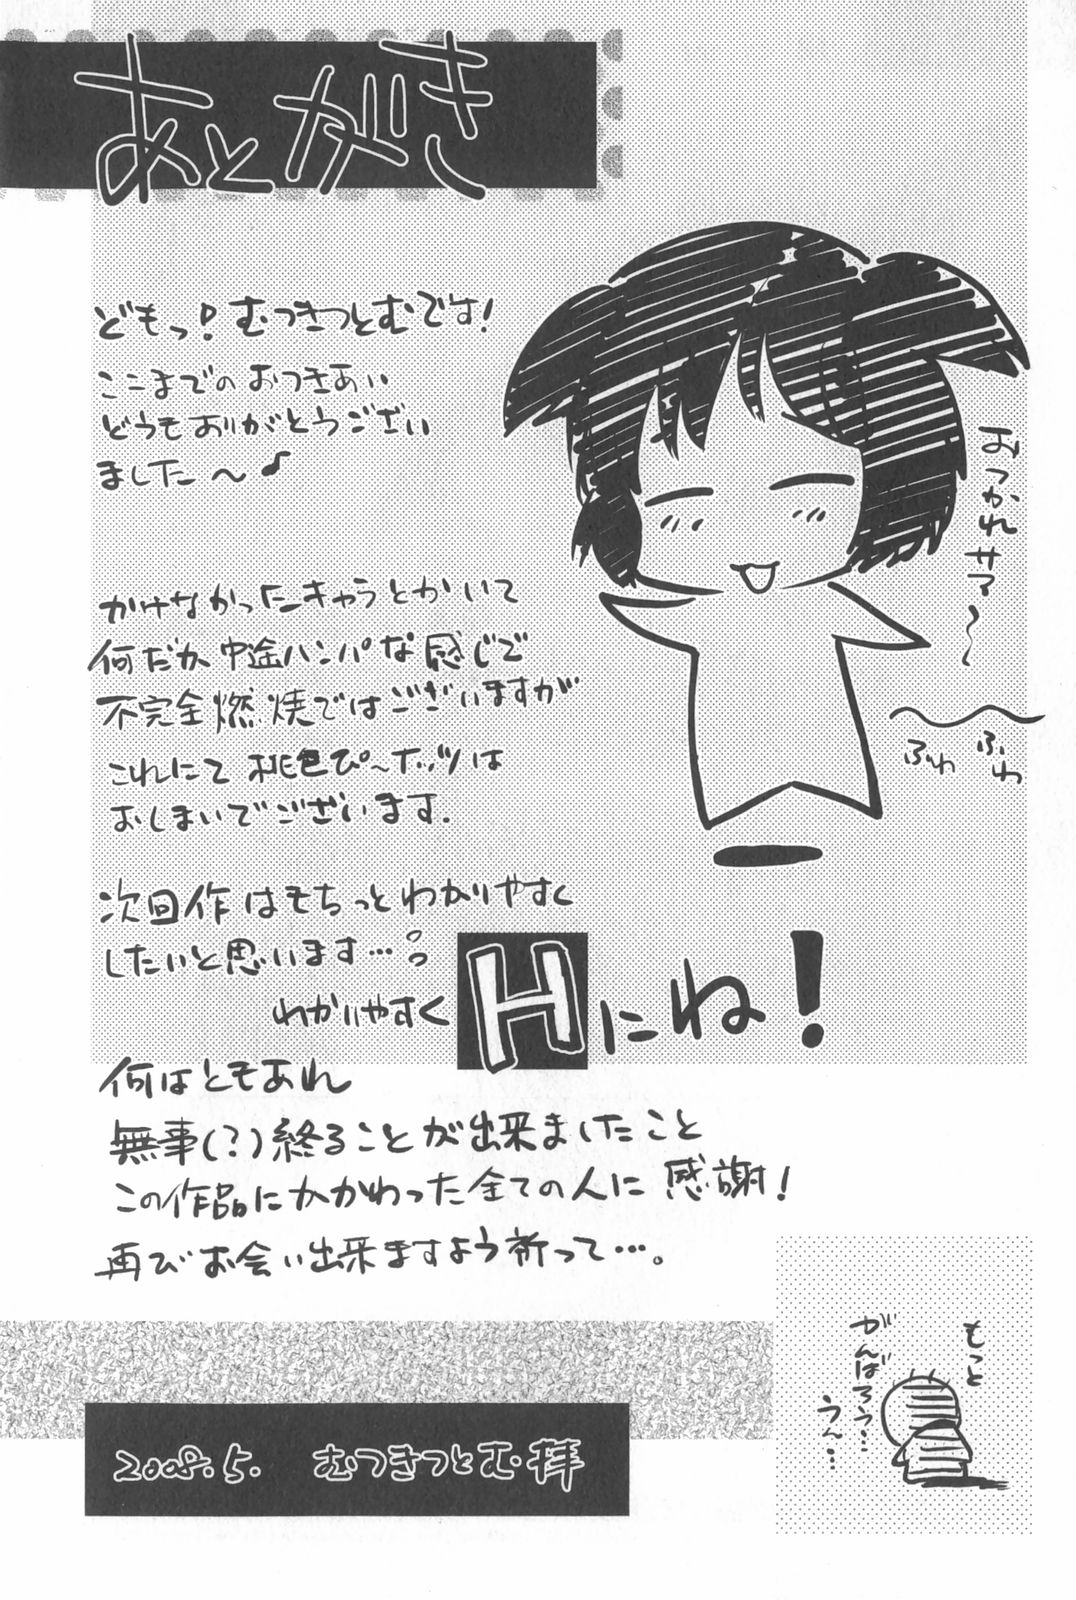 あとがき
どもっ！むつきつとむです！
ここまでのおつきあい
どうもありがとうござい
ました〜♪
おつかれサマ〜
ふわ
ふわ
かけなかったキャラとかいて
何だか中途ハンパな感じで
不完全燃焼ではございますが
これにて桃色ぴ〜ホッツは
おしまいでございます.
次回作はもちっとわかりやすく
したいと思います…
わかりやすくHにね！
何はともあれ
無事(？)終ることが出来ましたこと
この作品にかかわった全ての人に感謝！
再びお会い出来ますよう祈って…。
もっと
がんばろう…
うん…
2008.5. むつきつとむ拝